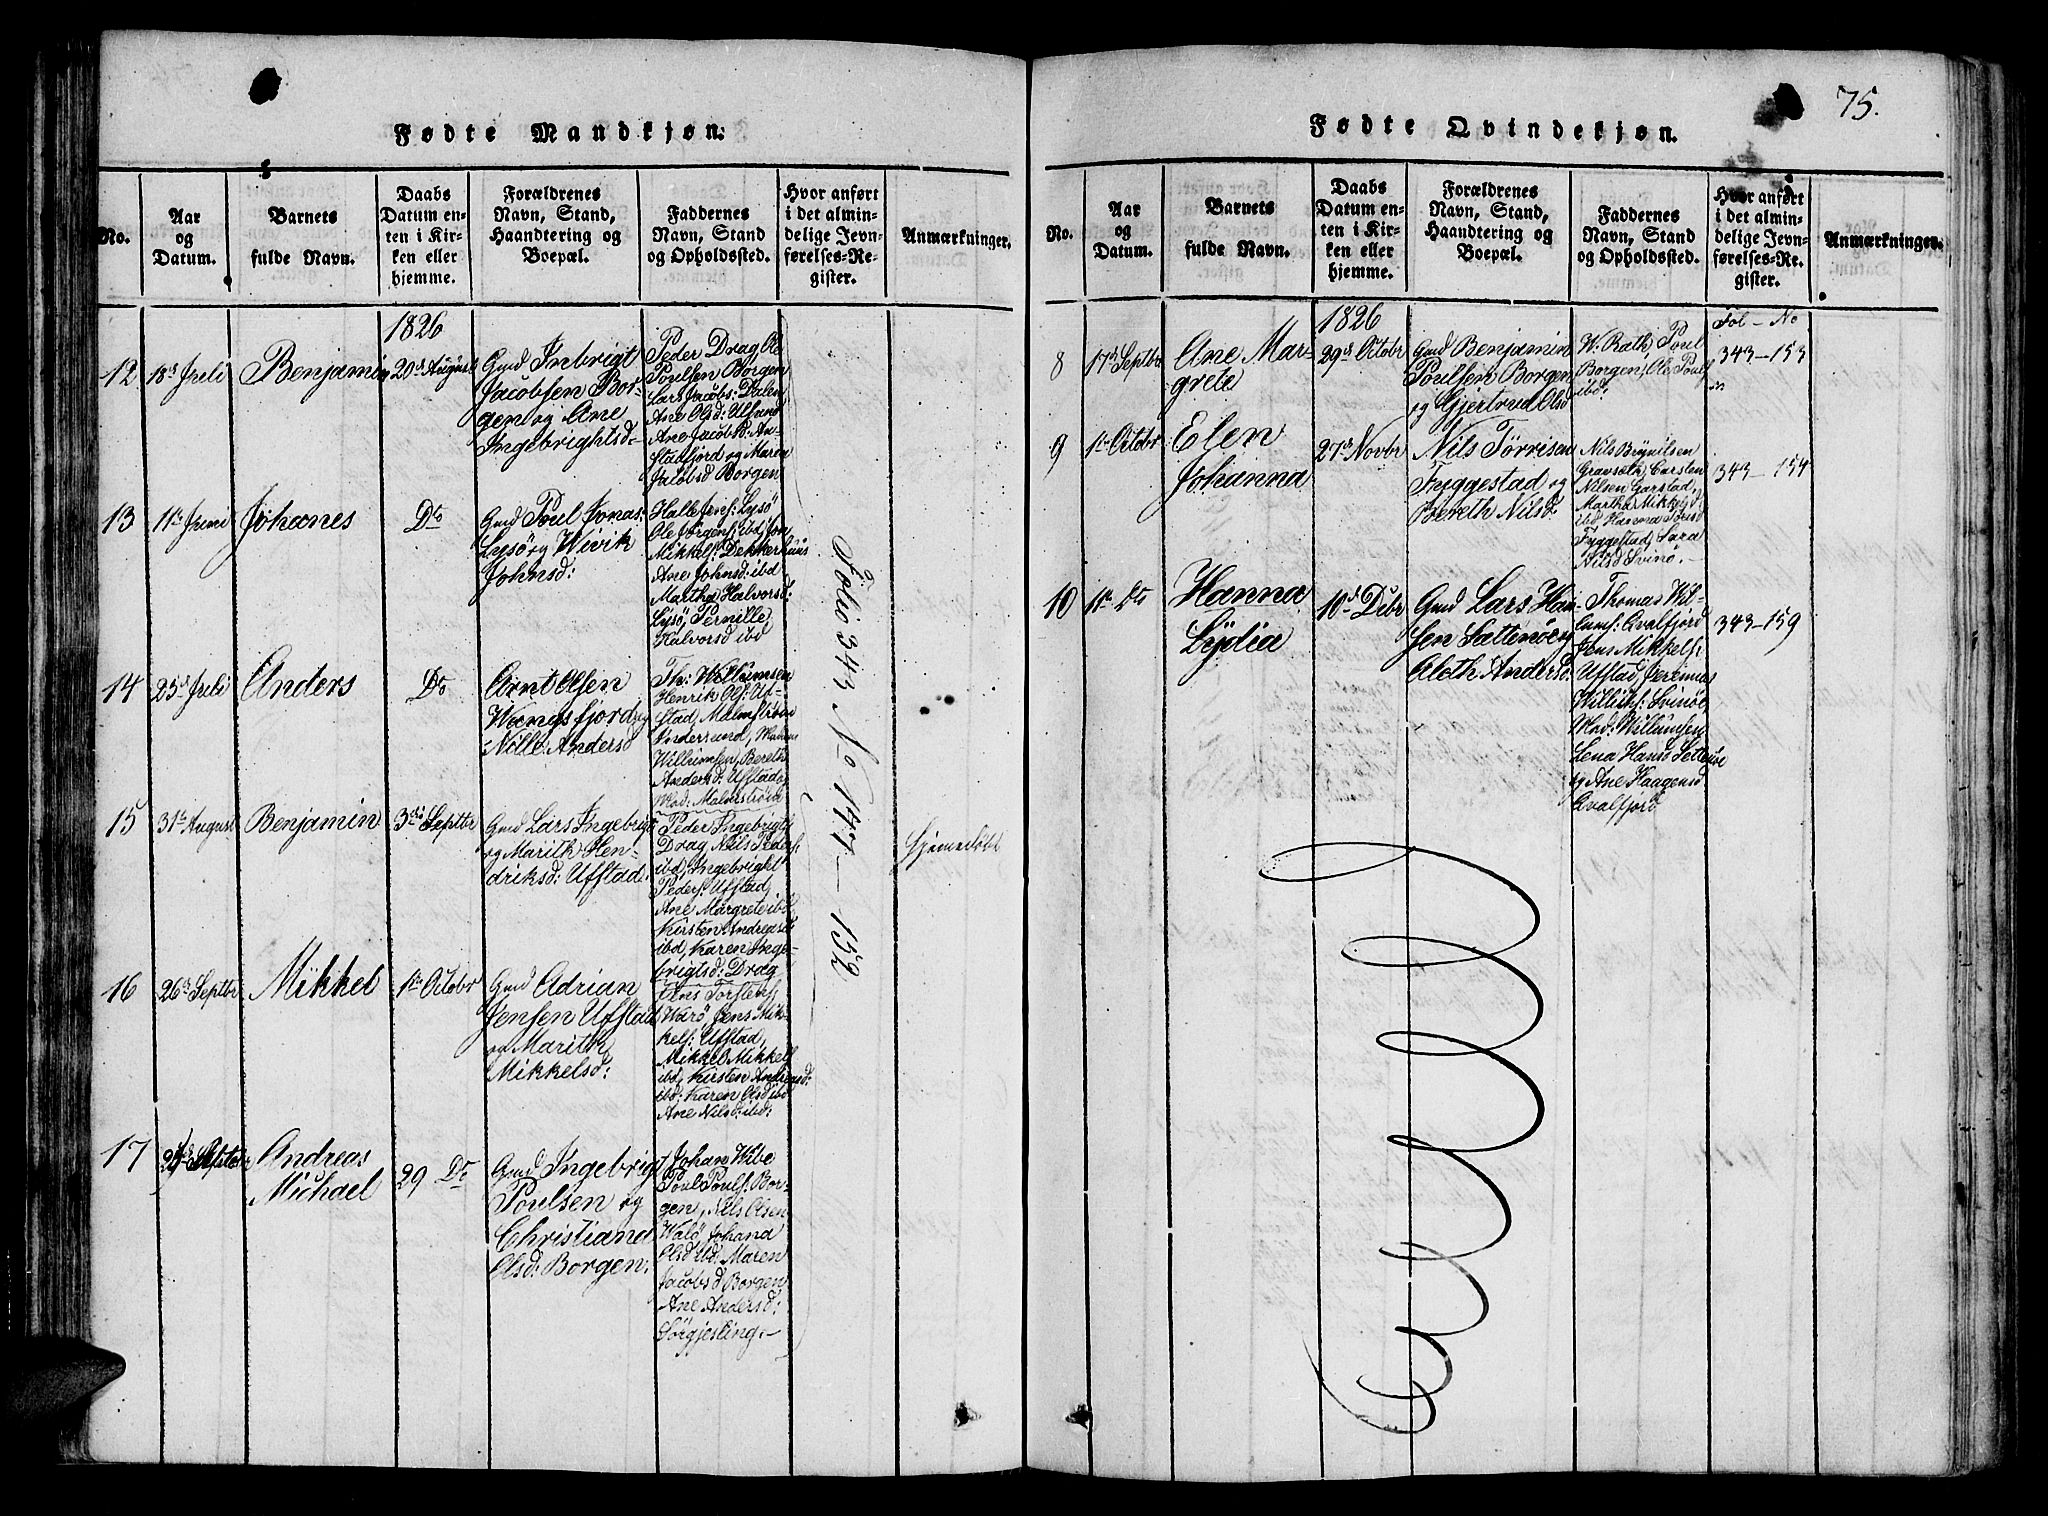 75.
Fødte Mandkjøn.
No.
Aar
og
Datum.
Barnets
fulde Navn.
Daabs
Datum en-
ten i Kir-
ken eller
hjemme.
Forældrenes
Navn, Stand,
Haandtering og
Boepæl.
Faddernes
Navn, Stand
og Opholdssted.
Hvor anført
i det almin-
delige Jevn-
førelses-Re-
gister.
Anmærkninger.
1826
12
18de Juli
Benjamin
20de August
Gmd Inbrigt
Jacobsen Bor-
gen og Ane
Ingebrightsd=
Peder Drag Ole
Poulsen Borgen
Lars Jacobs: Dalen
Ane Olsd: Ufstad
Ane Jacobsd: An-
stadfjord og Maren
Jacobsd Borgen
13
11te Juni
Johanes
Do
Gmd Poul Jonas:
Lysö og Wivik
Johnsd:
Halle Jens: Lysö
Ole Jörgens: ibd Jon
Mikkels: Dekkerhuus
Ane Johnsd: ibd
Martha Halvorsd:
Lysö, Pernille
Halvorsd ibd
14
25de Juli
Anders
Do
Arnt Olsen
Weengsfjord og
Nille: Andersd
Th: Willumsen
Henrik Ols: Uf-
stad, Malmström
Andersund,
Willumsen, Bereth
Andersd: Ufstad,
Mod: Malmström
15
31te August
Benjamin
3die Septbr
Gmd Lars Ingebrigt
og Marith Hen-
driksd: Ufstad.
Peder Ingebrigts
Drag Nils Peders:
ibd, Ingebrigt
Peders: Ufstad,
Ane Margrete ibd
Kirsten Andreasd:
ibd, Karen Inge-
brigtsd: Drag
Hjemedöbt
16
26de Septbr
Mikkel
1te Octobr
Gmd Adrian
Jensen Ufstad
og Marith
Mikkelsd:
Ans Torstens
Warö Jens Mik-
kels: Ufstad,
Mikkel Mikkels
ibd, Kirsten Andreasd:
ibd: Karen Olsd ibd
Ane Nilsd: ibd:
17
Andreas
Michael
29 Do
Gmd Ingebrigt
Poulsen og
Christiana
Olsd: Borgen:
Johan Wibe
Poul Pouls: Bor-
gen, Nils Olsen
Walö Johana
Olsd ibd: Maren
Jacobsd Borgen
Ane Andersd:
Sörgjesling.-
Folio 343 No 147-152
Fødte Qvindekjøn.
No.
Aar
og
Datum.
Barnets
fulde Navn.
Daabs
Datum en-
ten i Kir-
ken eller
hjemme.
Forældrenes
Navn, Stand,
Haandtering og
Boepæl.
Faddernes
Navn, Stand
og Opholdssted.
Hvor anført
i det almin-
delige Jevn-
førelses-Re-
gister.
Anmærkninger.
1826
Fol - No
8
17de Septbr
Ane Mar-
grete
29de Octobr
Gmd Benjamin
Poulsen Borgen
og Gjertrud Olsd
W: Rath, Poul
Borgen, Ole Pouls
ibd:
343-153
9
1te Octobr
Elen
Johanna
27de Novbr
Nils Törrisen
Fyggestad og
Bereth Nilsd:
Nils Brynilsen
Gravsetn, Carsten
Nilsen Garstad,
Martha Mikkelsd
ibd, Hanna Törrisd
Fyggestad, Sara
Nilsd Svinö.-
343-154
10
1te Do
Hanna
Lydia
10de Debr
Gmd Lars Han-
sen Sattenöe og
Aleth Andersd:
Thomas Wil-
lums: Qvalfjord
Jens Mikkels:
Ufstad, Jeremias
Willichs: Svinöe
Mod: Willumsen
Lena Hansd Settenöe
og Ane Haagensd
Qvalfjord
343-159